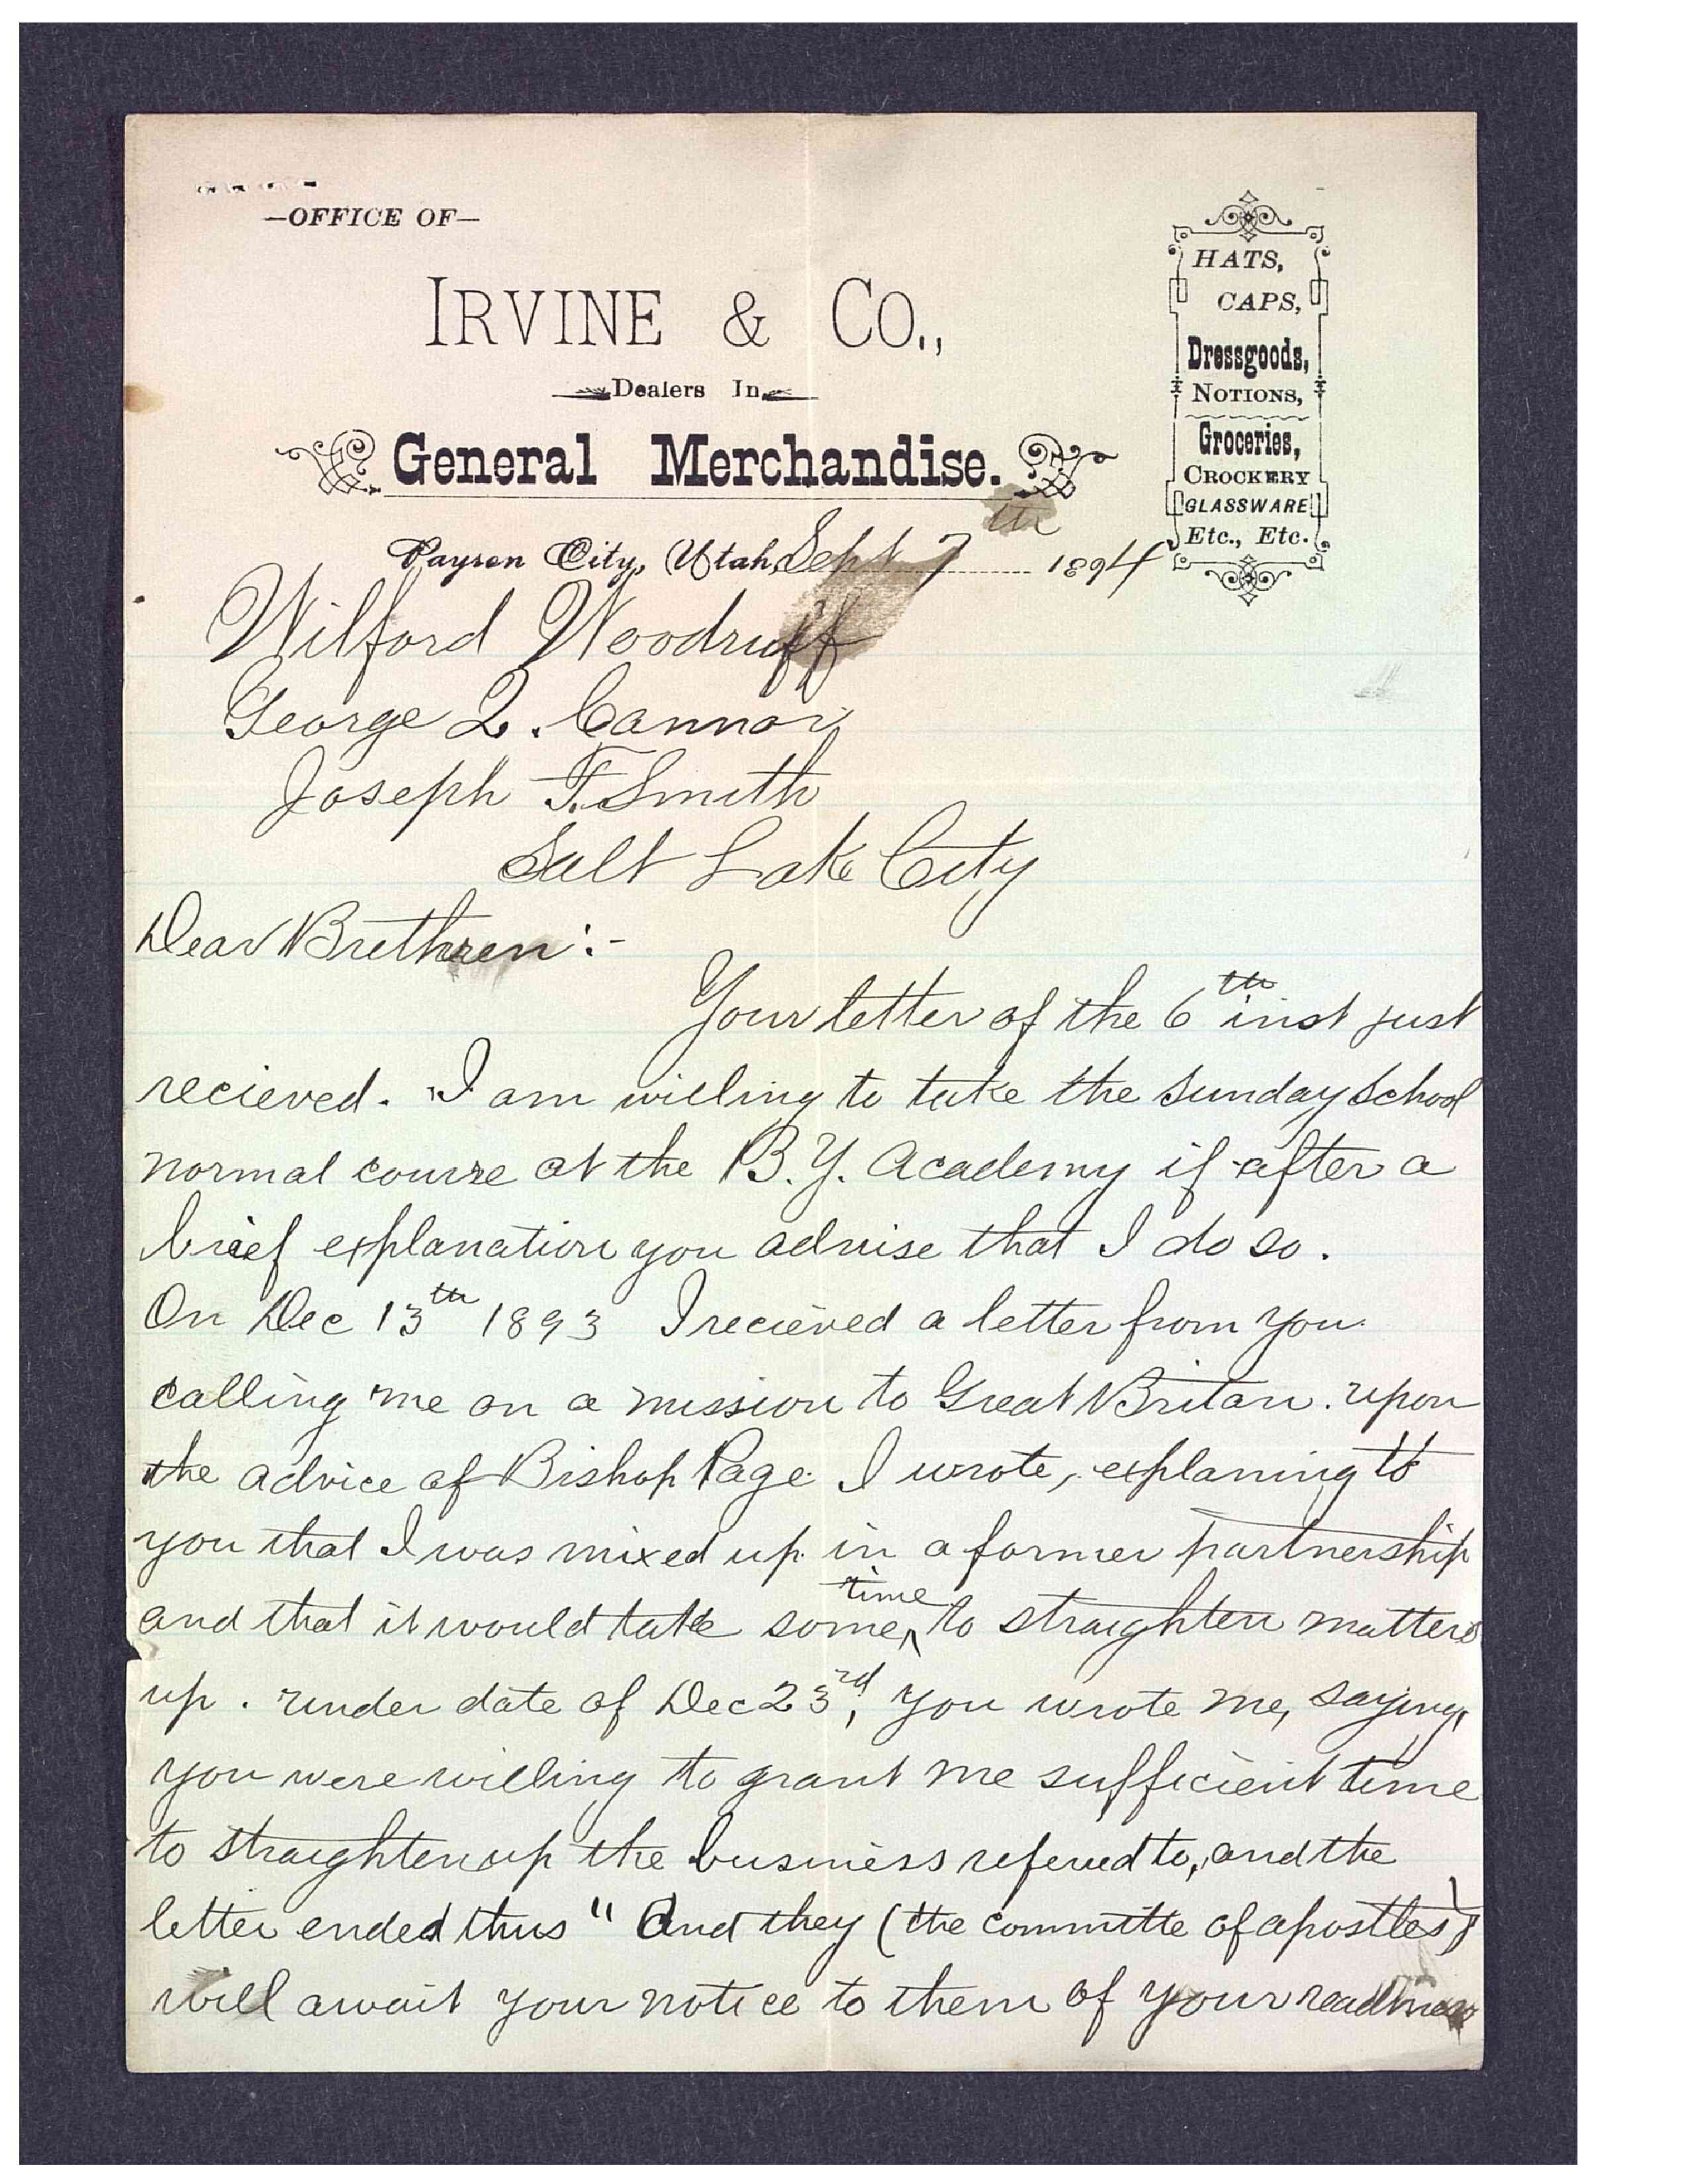 —OFFICE OF—
IRVINE & CO.,
Dealers In
General Merchandise.
HATS,
CAPS,
Dressgoods,
NOTIONS,
Groceries,
CROCKERY
GLASSWARE
Etc., Etc.
Payson City, Utah, Sept 7th 1894
Wilford Woodruff
George Q. Cannon
Joseph F. Smith
Salt Lake City
Dear Brethren:-
Your letter of the 6th inst just
recieved. I am willing to take the Sunday School
normal course at the B.Y. Academy if after a
brief explanation you advise that I do so.
On Dec 13th 1893 I recieved a letter from you
calling me on a mission to Great Britan. upon
the advice of Bishop Page I wrote, explaning to
you that I was mixed up in a former partnership
and that it would take some time to straighten matters
up. under date of Dec 23rd, you wrote me, saying,
you were willing to grant me sufficient time
to straighten up the business refered to, and the
letter ended thus "And they (the committe of apostles)
will await your notice to them of your readiness